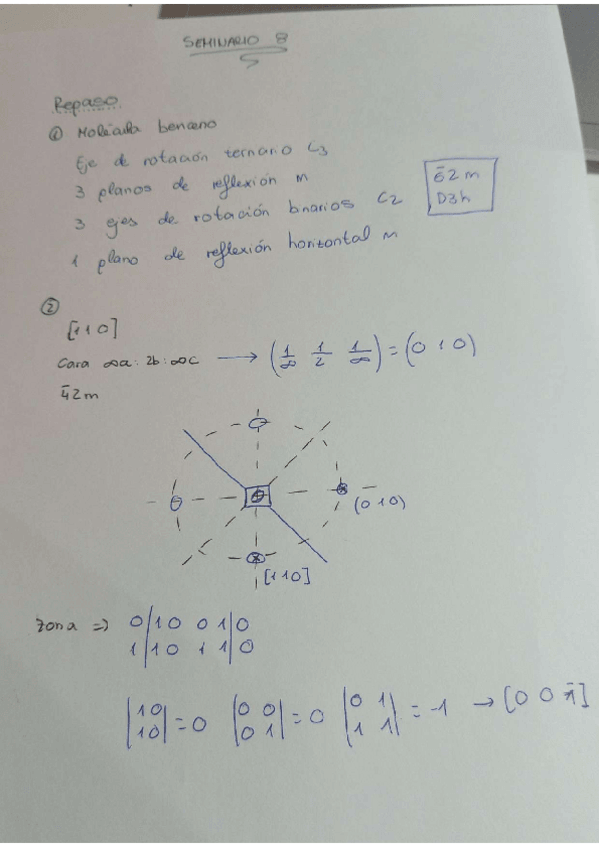 SEMINARIO 8
Repaso
① Molécula benceno
Eje de rotación ternario C3
3 planos de reflexión m
3 ejes de rotación bnarios C2
1 plano de reflexión horizontal m
6̄2m
D3h
②
[110]
Cara ∞a:2b:∞c → (1/∞ 1/2 1/∞) = (0 1 0)
4̄2m
(010)
[110]
Zona => 0|10 01|0
1|10 11|0
|10| = 0 |0 0| = 0 |0 1| = -1 → [0 0 1̄]
|10| |0 1| |1 1|